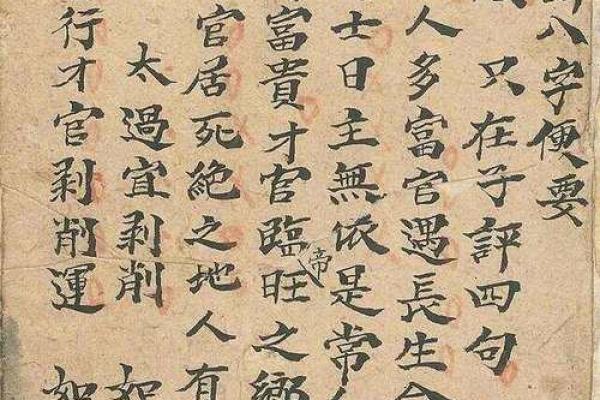 八字便要
只在子評四句
人多富官遇長生
士日主無依是常
富貴才官臨帝旺之鄉
官居死絕之地人有
太過宜剥削
行才官剥削運